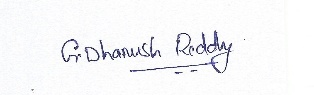 G. Dhanush Reddy